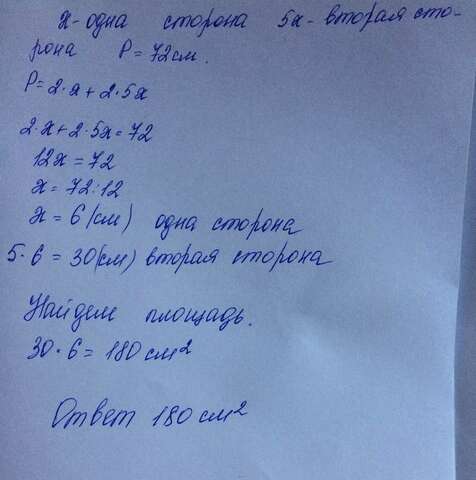 x - одна сторона 5x - вторая сто-
рона P = 72 см.
P = 2·x + 2·5x
2·x + 2·5x = 72
12x = 72
x = 72:12
x = 6 (см) одна сторона
5·6 = 30 (см) вторая сторона
Найдем площадь.
30·6 = 180 см²
Ответ 180 см²